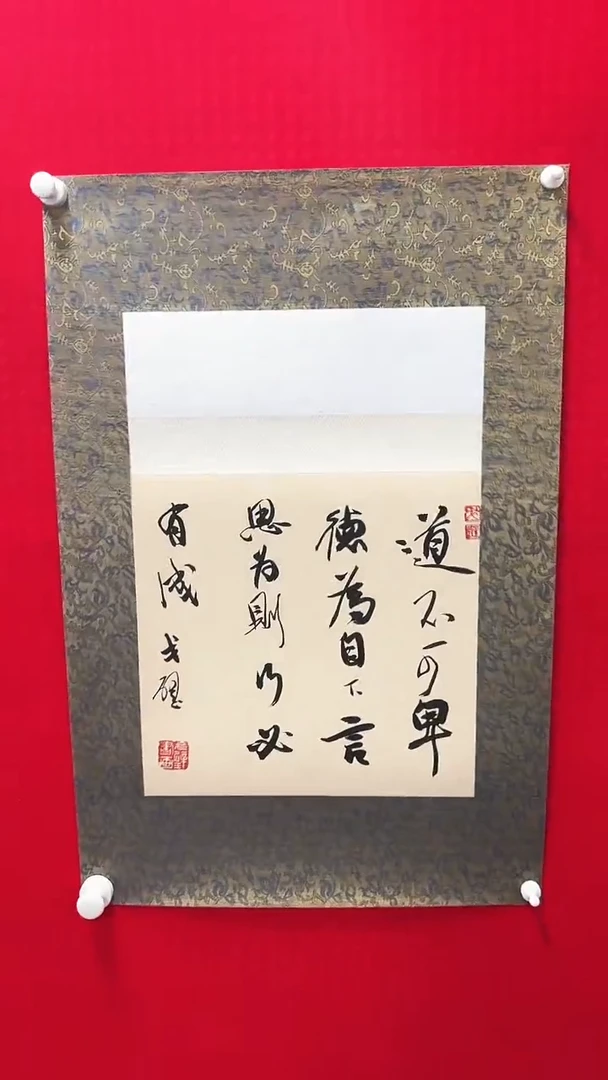 道不可卑
德為目下言
思为則行必
有成 戈壁